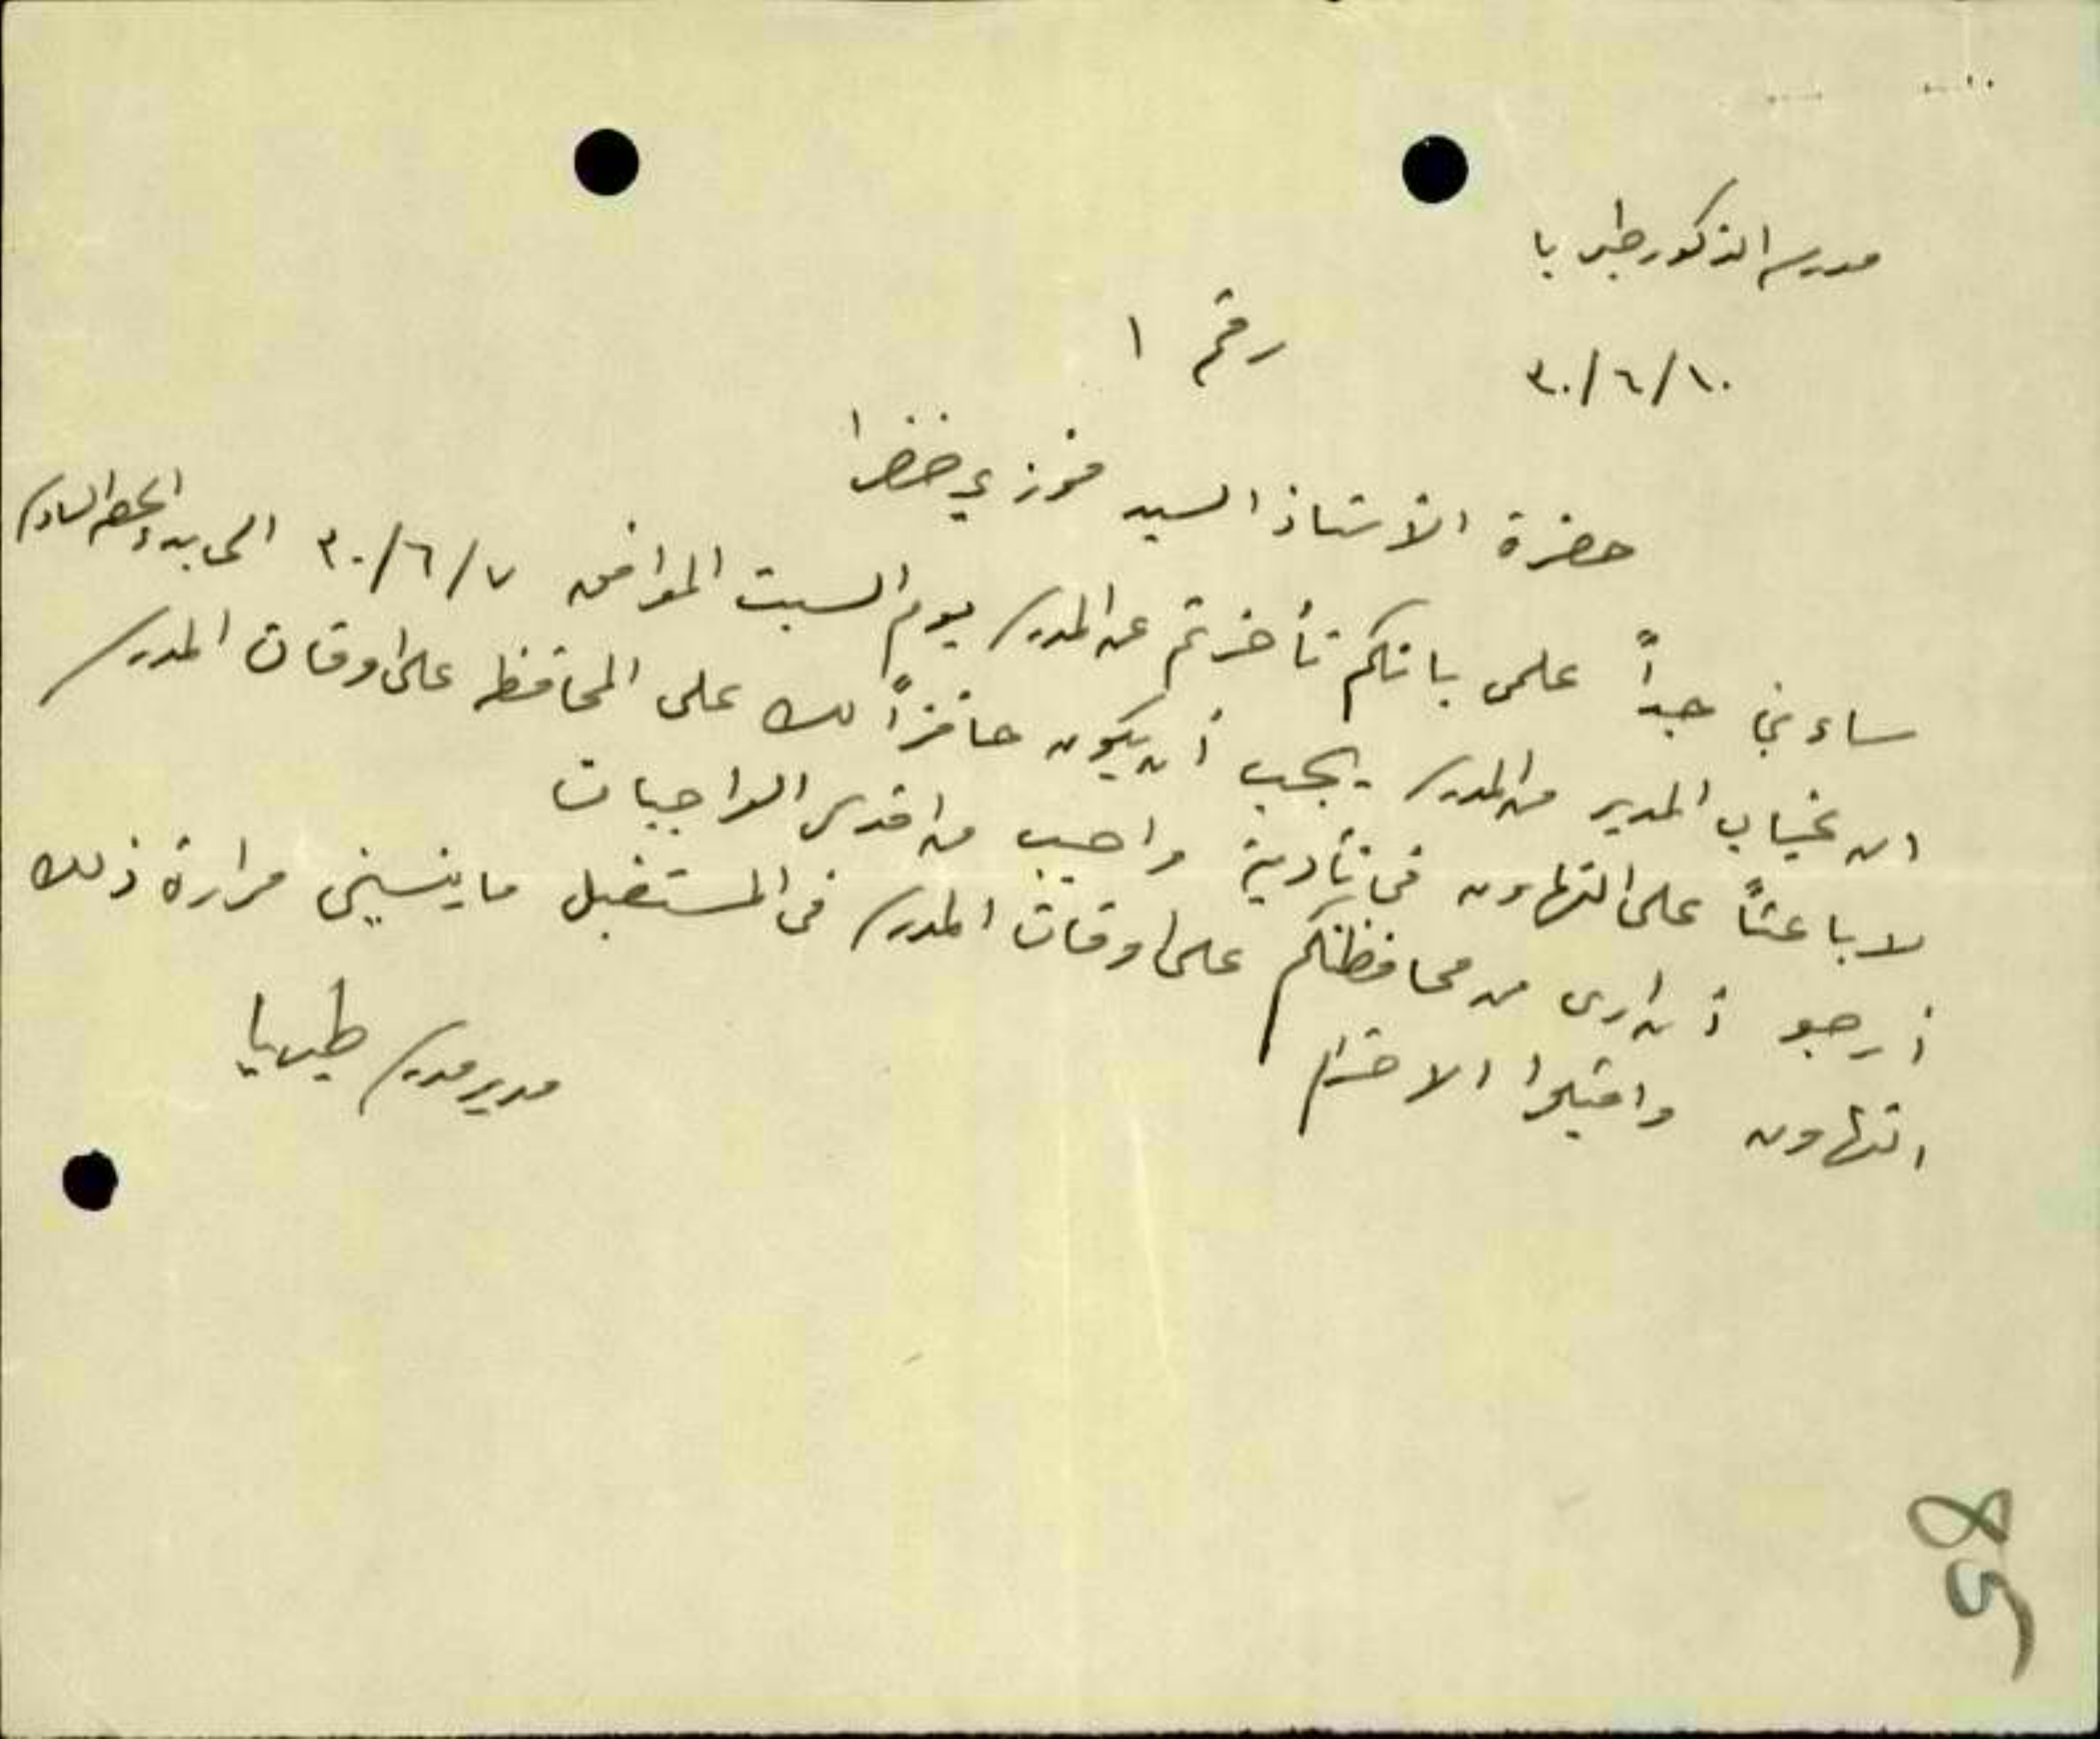 مدرسة الذكور طبريا
٣٠/٦/١٠
رقم ١
حضرة الأستاذ السيد فوزي خضرا
ساءني جداً علمي بانكم تأخرتم عن المدرسة يوم السبت الموافق ٣٠/٦/٧ الى بدء الحصة السادسة
ان غياب المدير من المدرسة يجب أن يكون حافزاً لك على المحافظة على اوقات المدرسة
لا باعثاً على التهاون في تأدية واجب من اقدس الواجبات
أرجو أن ارى من محافظتكم على اوقات المدرسة في المستقبل ما ينسيني مرارة ذلك
التهاون واقبلوا الاحترام
مدير مدرسة طبريا